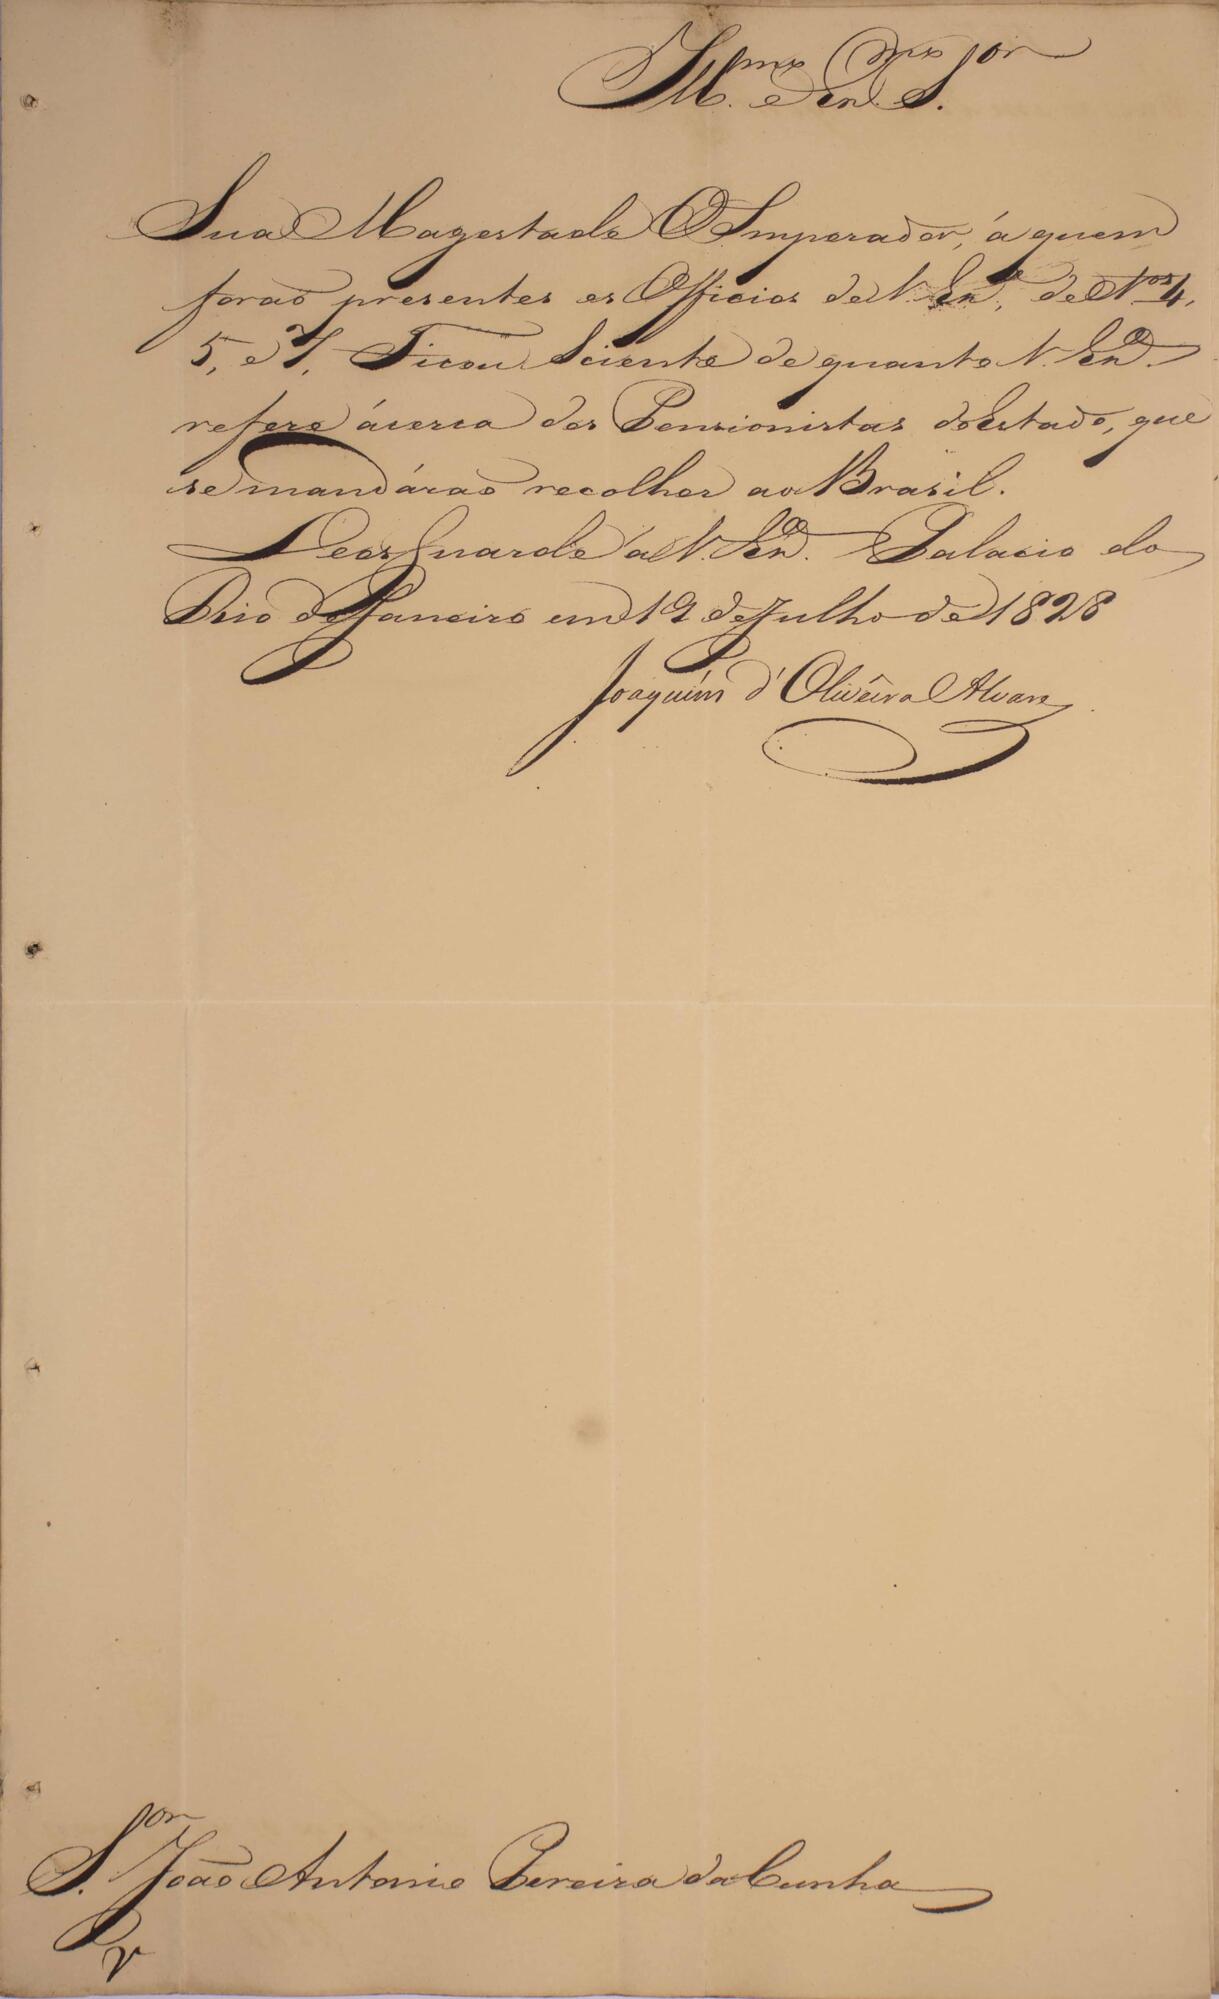 Ill.mo e Ex.mo S.or
Sua Magestade O Imperador, á quem
forão presentes os Officios de V. Ex.a, de N.os 4,
5, e 7, Ficou Sciente de quanto V. Ex.a
refere ácerca dos Pensionistas do Estado, que
se mandárão recolher ao Brasil.
Deos Guarde a V. Ex.a. Palacio do
Rio de Janeiro em 19 de Julho de 1828
Joaquim d'Oliveira Alvares
S.or João Antonio Pereira da Cunha